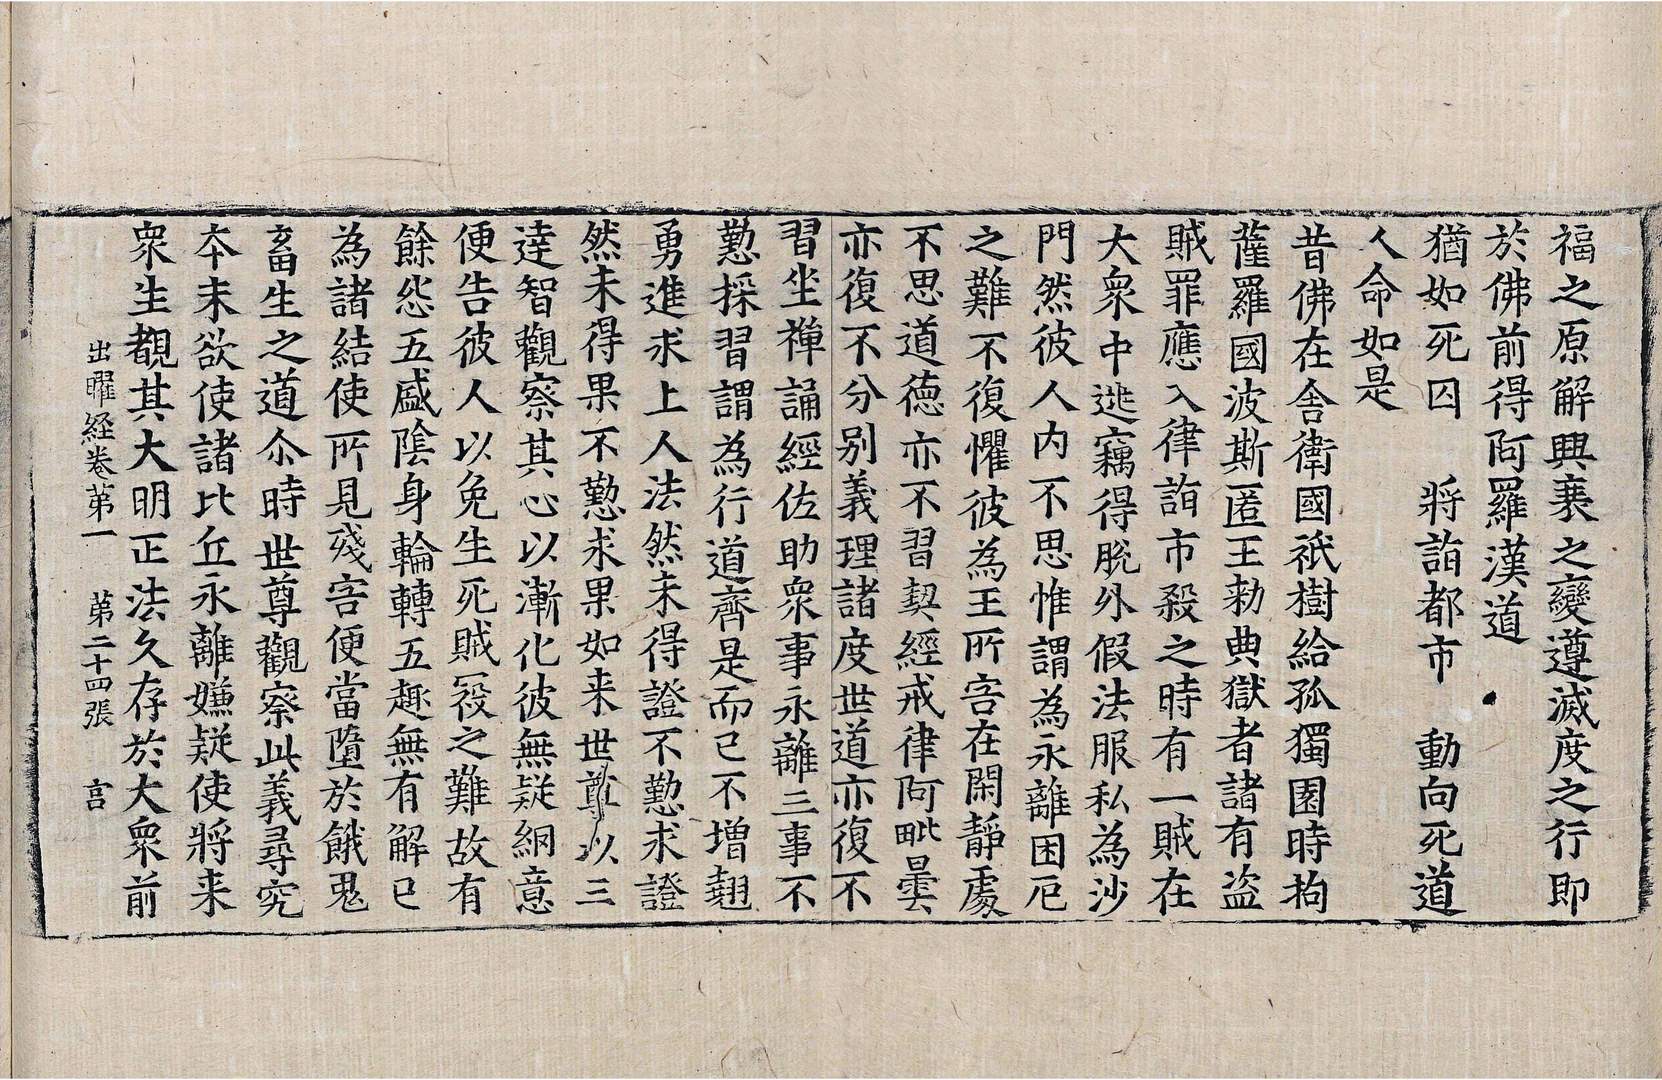 福之原解興衰之變遵滅度之行即
於佛前得阿羅漢道
猶如死囚　將詣都市　動向死道
人命如是
昔佛在舍衛國祇樹給孤獨園時拘
薩羅國波斯匿王勑典獄者諸有盗
賊罪應入律詣市殺之時有一賊在
大衆中逃竊得脫外假法服私為沙
門然彼人内不思惟謂為永離困厄
之難不復懼彼為王所害在閑靜處
不思道德亦不習契經戒律阿毗曇
亦復不分别義理諸度世道亦復不
習坐禅誦經佐助衆事永離三事不
懃採習謂為行道齊是而已不增翹
勇進求上人法然未得證不懃求證
然未得果不懃求果如来世尊以三
達智觀察其心以漸化彼無疑網意
便告彼人以免生死賊役之難故有
餘㤪五盛陰身輪轉五趣無有解已
為諸結使所見殘害便當墮於餓鬼
畜生之道尒時世尊觀察此義尋究
夲末欲使諸比丘永離嫌疑使將来
衆生覩其大明正法久存於大衆前
出曜经卷苐一　苐二十四張　言